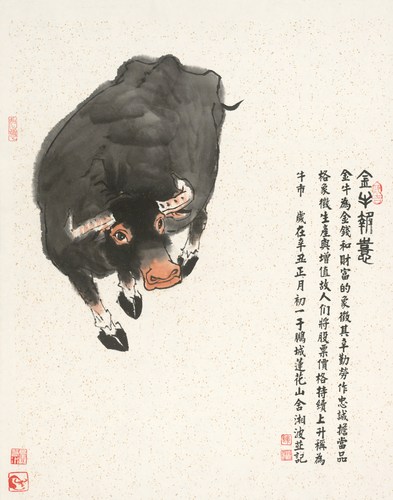 金牛報喜
金牛為金錢和財富的象徵其辛勤勞作忠誠擔當品
格象徵生產與增值故人们將股票價格持續上升稱為
牛市 歲在辛丑正月初一于鵬城蓮花山舍湘波並記